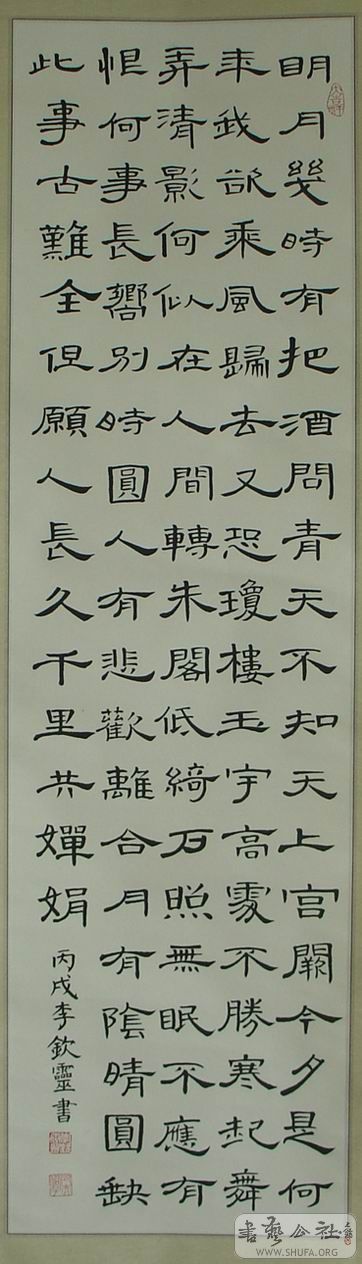 明月幾時有把酒問青天不知天上宮闕今夕是何
年我欲乘風歸去又恐瓊樓玉宇高處不勝寒起舞
弄清影何似在人間轉朱閣低綺户照無眠不應有
恨何事長嚮別時圓人有悲歡離合月有陰晴圓缺
此事古難全但願人長久千里共嬋娟
丙戌李欽靈書
書藝公社
WWW.SHUFA.ORG